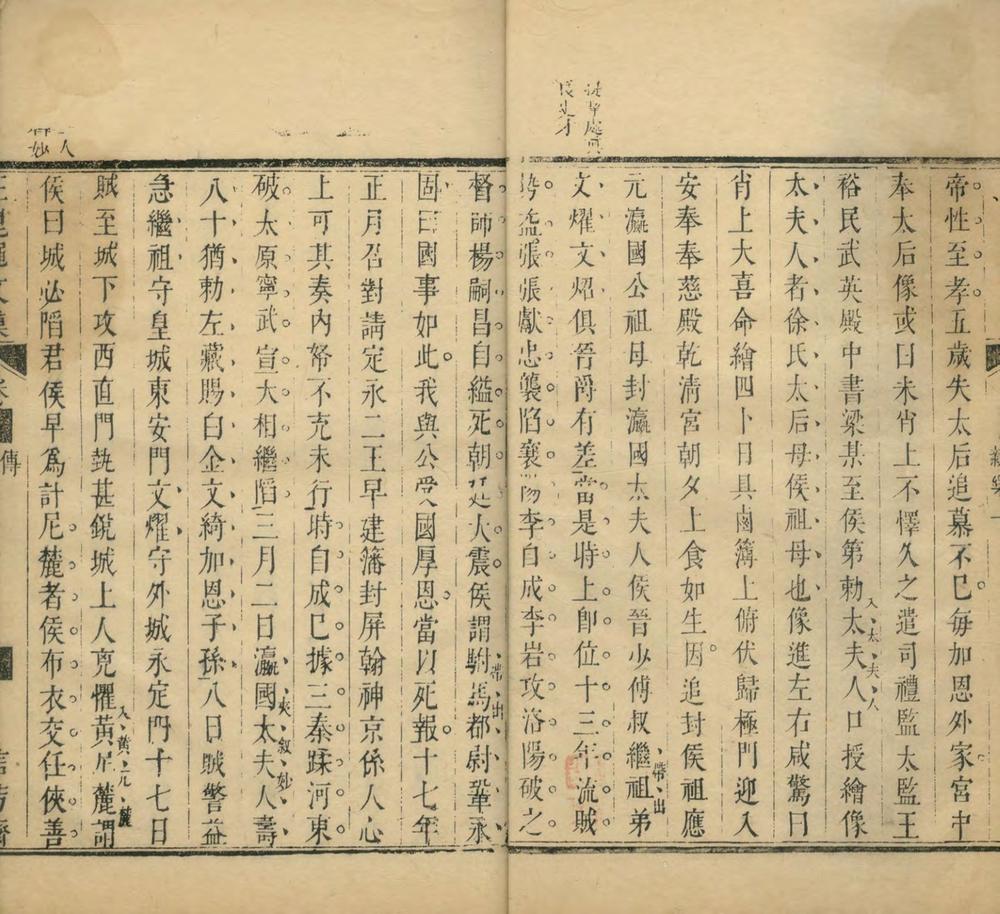 帝性至孝五歲失太后追慕不已每加恩外家宮中
奉太后像或曰未肖上不懌久之遣司禮監太監王
裕民武英殿中書梁某至侯第勅太夫人口授繪像
入太夫人
太夫人者徐氏太后母侯祖母也像進左右咸驚曰
肖上大喜命繪四卜日具鹵簿上俯伏歸極門迎入
安奉奉慈殿乾清宮朝夕上食如生因追封侯祖應
元瀛國公祖母封瀛國太夫人侯晉少傅叔繼祖弟
帶出
文燿文炤俱晉爵有差當是時上卽位十三年流賊
勢益張張獻忠襲陷襄陽李自成李岩攻洛陽破之
督師楊嗣昌自縊死朝廷大震侯謂駙馬都尉鞏永
帶出
固曰國事如此我與公受國厚恩當以死報十七年
正月召對請定永二王早建藩封屏翰神京係人心
上可其奏內帑不充未行時自成已據三秦蹂河東
破太原寧武宣大相繼陷三月二日瀛國太夫人壽
夾敘妙
八十猶勅左藏賜白金文綺加恩子孫八日賊警益
急繼祖守皇城東安門文燿守外城永定門十七日
賊至城下攻西直門勢甚銳城上人克懼黃尼麓謂
入黃尼麓
侯曰城必陷君侯早爲計尼麓者侯布衣交任俠善
傳